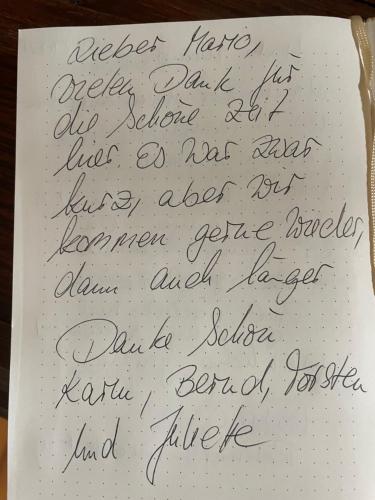 Lieber Mario,
vielen Dank für
die Schöne Zeit
hier. Es war zwar
kurz, aber wir
kommen gerne wieder,
dann auch länger
Danke Schön
Karin, Bernd, Torsten
und Juliette